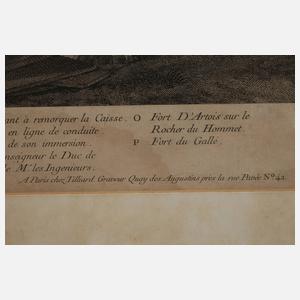 ant à remorquer la Caisse.
en ligne de conduite
de son immersion.
nseigneur le Duc de
e Mrs. les Ingenieurs.
O Fort D'Artois sur le
Rocher du Hommet.
P Fort du Galle.
A Paris chez Tilliard Graveur Quay des Augustins près la rue Pavée No. 42.